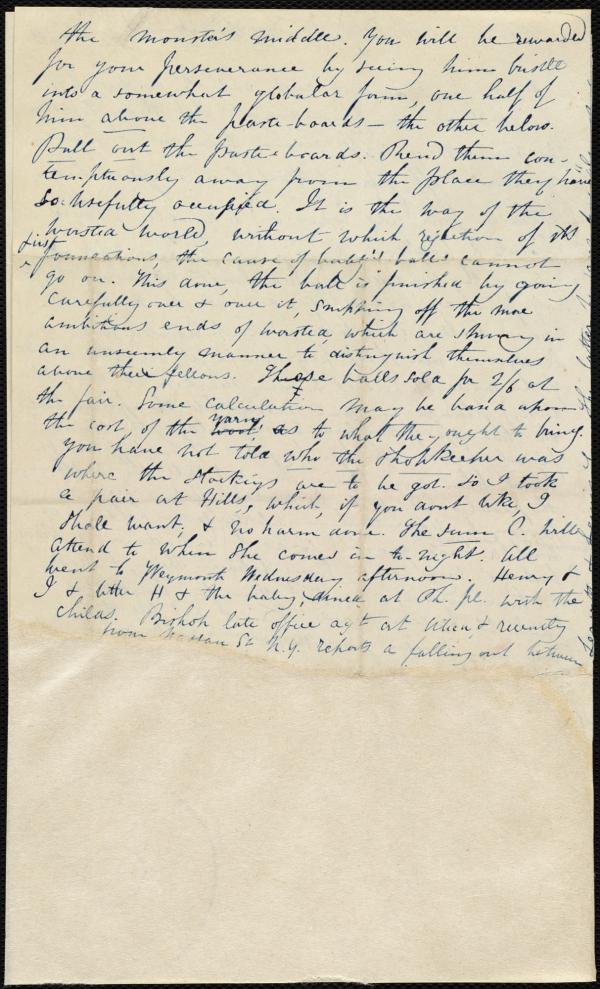 the monster's middle. You will be rewarded
for your perseverance by seeing him bustle
into a somewhat globular form, one half of
him above the paste-boards - the other below.
Pull out the paste-boards. Rend them con-
temptuously away from the place they have
so usefully occupied. It is the way of the
worsted world, without which rejection of its
first foundations, the cause of balls cannot
go on. This done, the ball is finished by going
carefully over & over it, snipping off the more
ambitious ends of worsted, which are striving in
an unseemly manner to distinguish themselves
above their fellows. These balls sold for 2/6 at
the fair. Some calculation may be based upon
the cost of the wool yarn, as to what they ought to bring.
You have not told who the shopkeeper was
where the stockings are to be got. So I took
a pair at Hills, which, if you dont like, I
shall want, & no harm done. The sum C. will
attend to when she comes in to-night. All
went to Weymouth Wednesday afternoon. Henry &
I & little H & the baby, dined at Ch. pl. with the
Childs. Bishop late office agt at Utica, & recently
from Nassau St N.Y. reports a falling out between